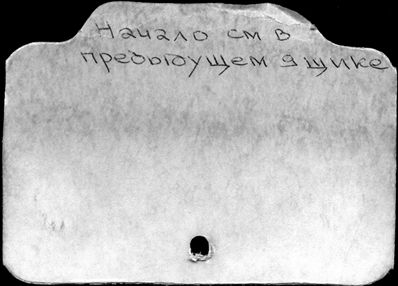 Начало см в
предыдущем ящике